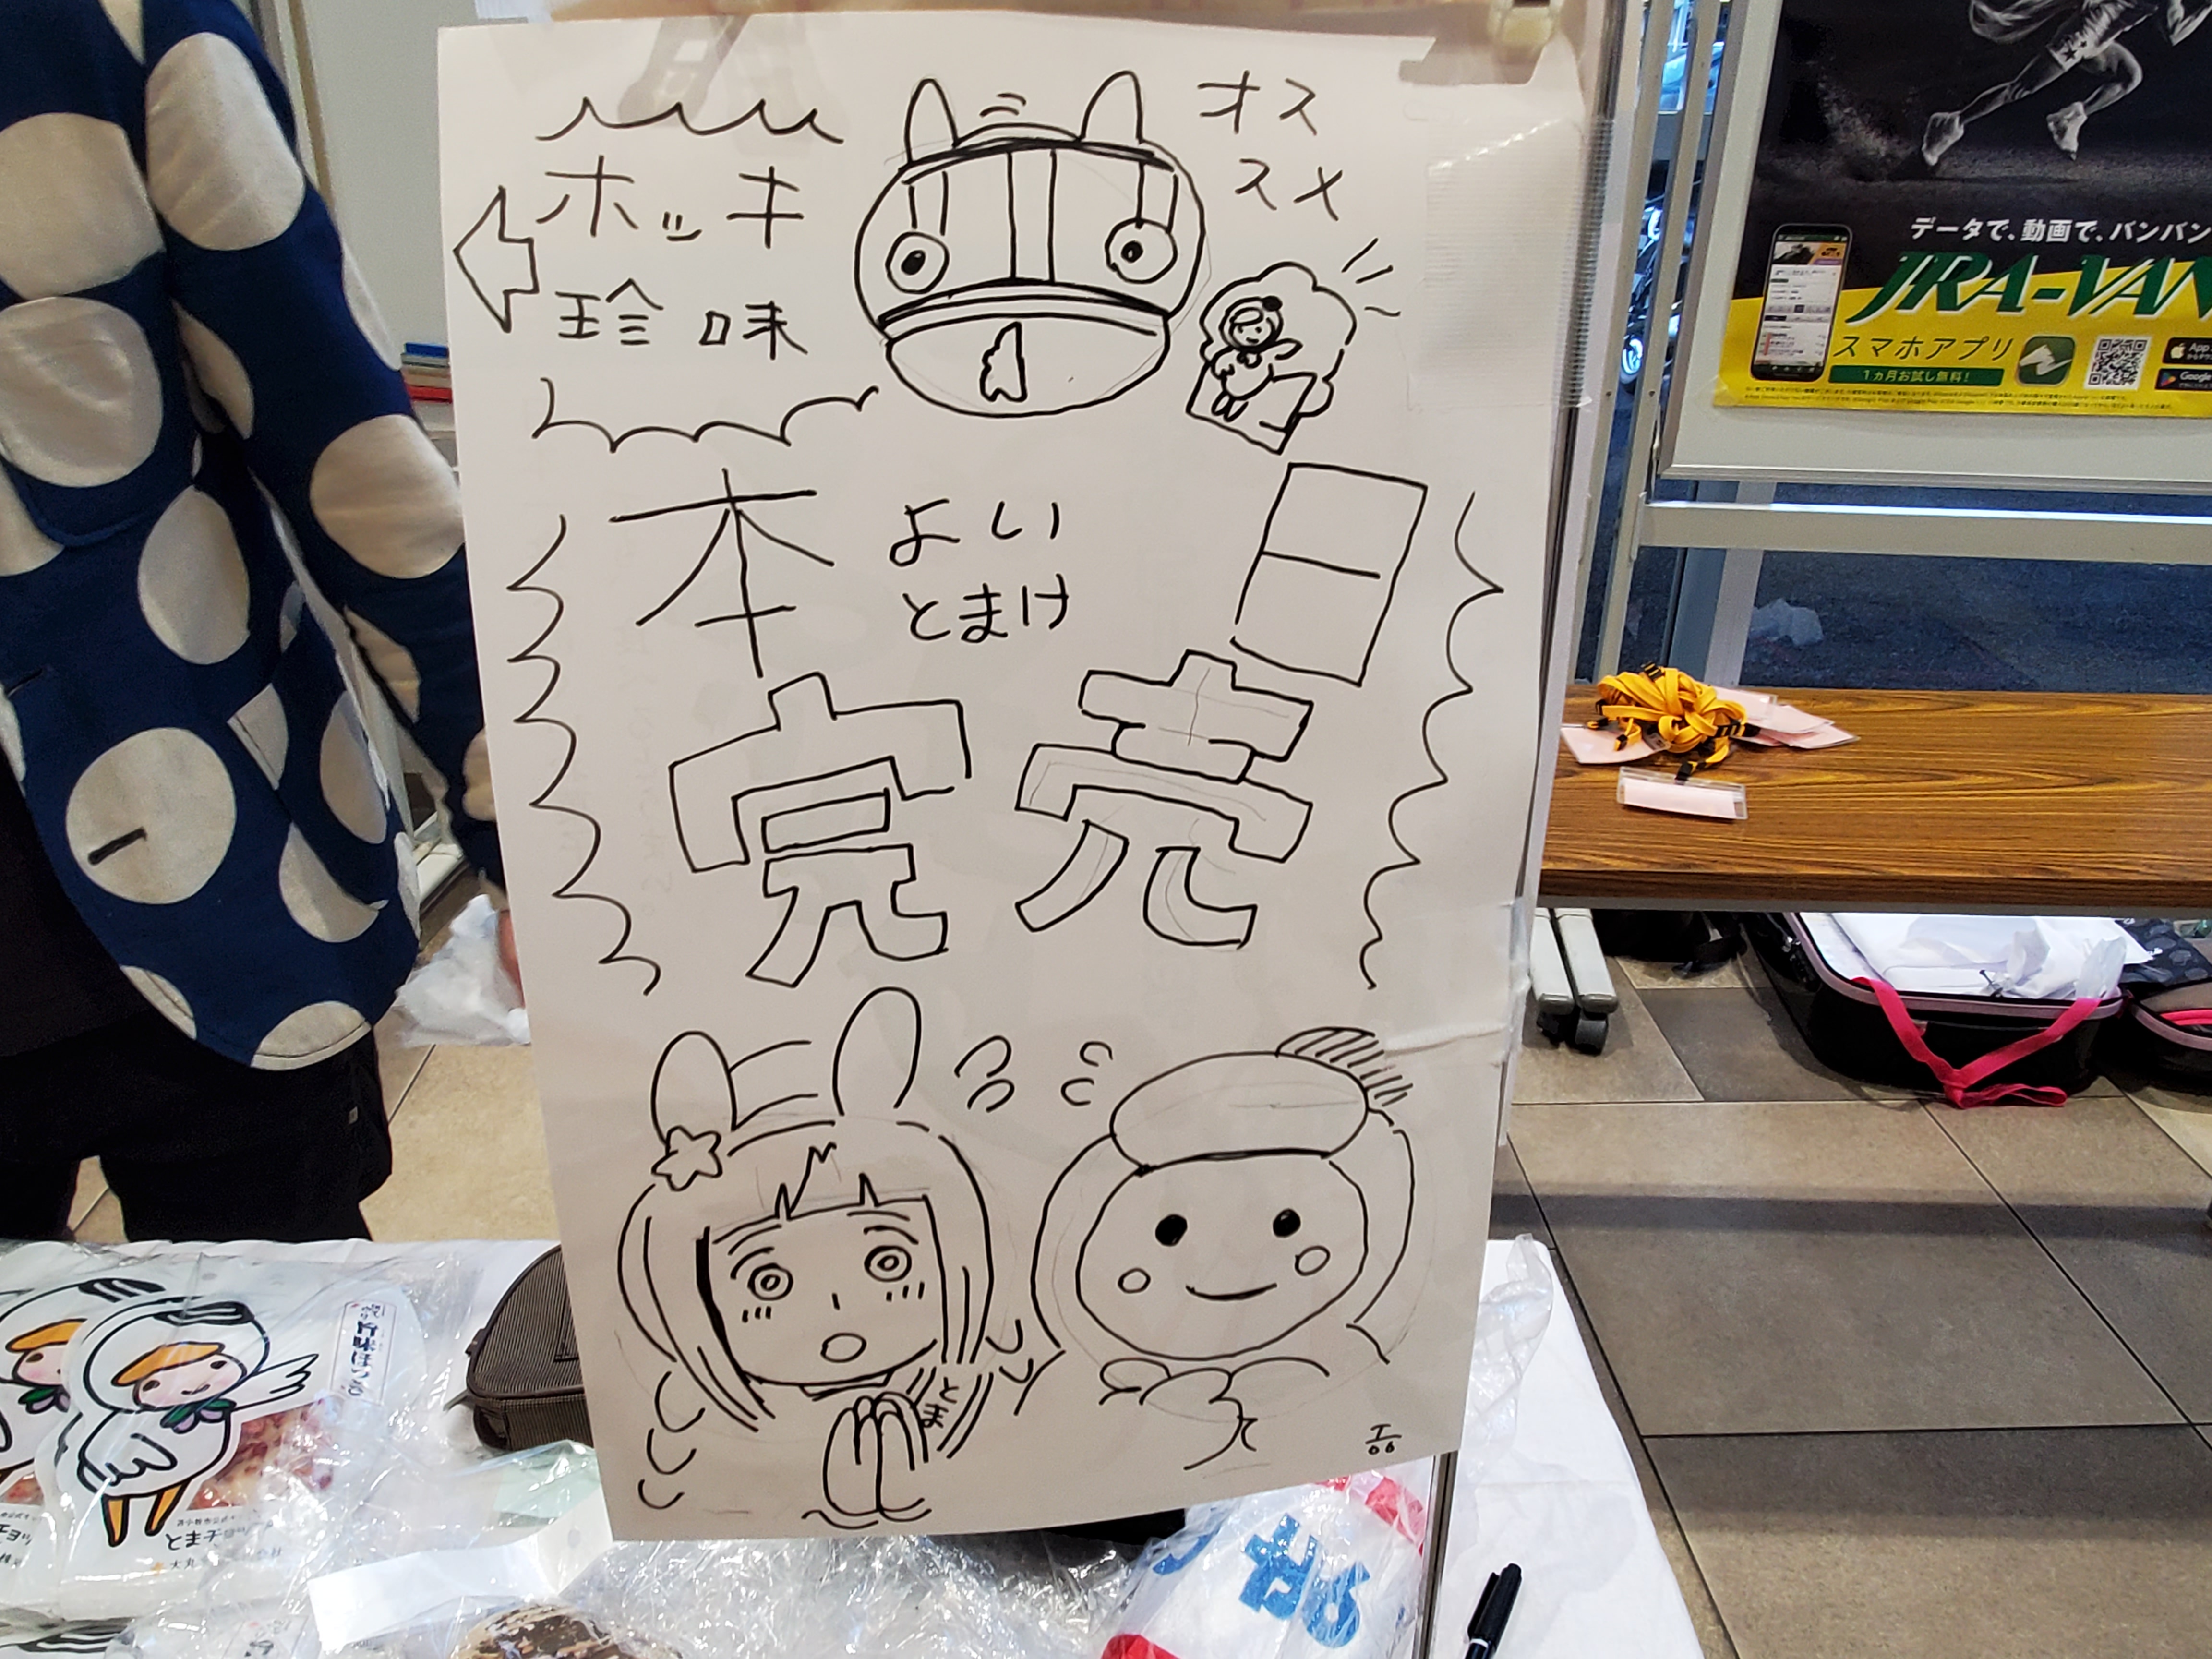 オス
スメ
ホッキ
珍味
本
よい
とまけ
日
完売
とま
データで、動画で、バンバン
JRA-VAN
スマホアプリ
1ヵ月お試し無料!
App
Google
旨味ほっき
とまチョップ